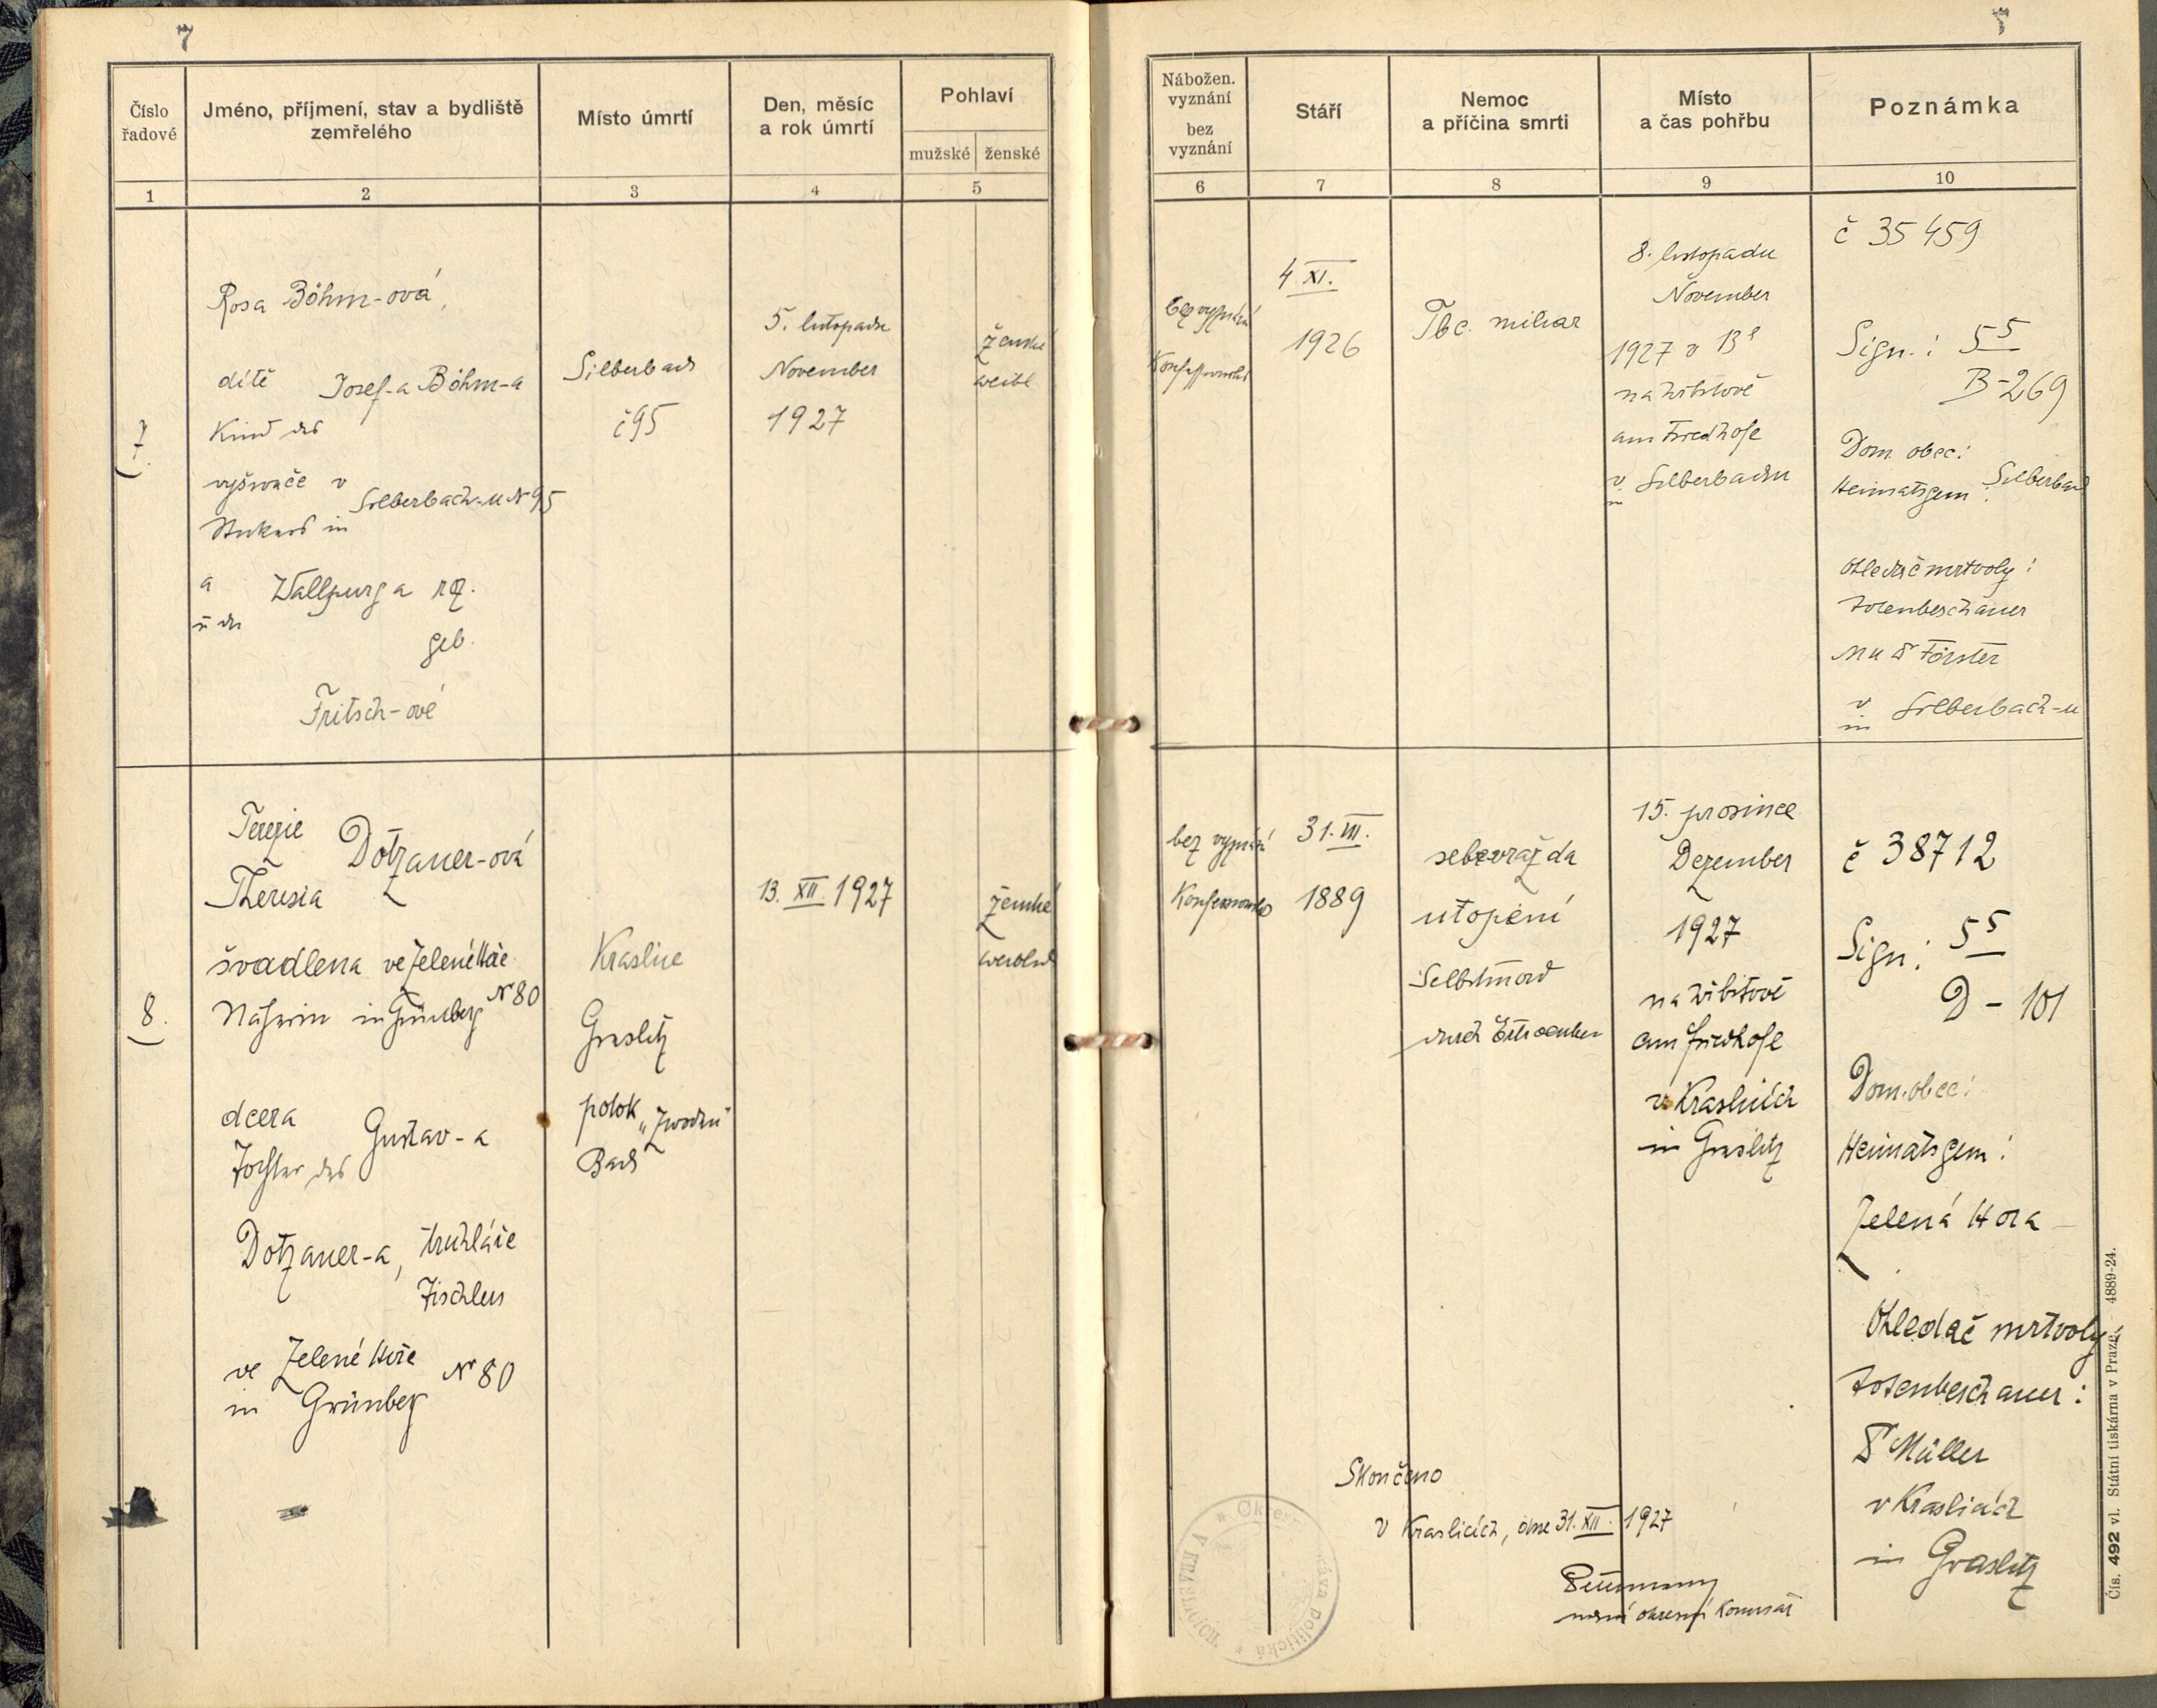 7
Číslo řadové
Jméno, příjmení, stav a bydliště zemřelého
Místo úmrtí
Den, měsíc a rok úmrtí
Pohlaví
mužské
ženské
1
2
3
4
5
7.
Rosa Böhm-ová,
dítě Josef-a Böhm-a
Kind des
v
Silberbach-u N 95
in
a Wallpurga roz.
u der geb.
Fritsch-ové
Silberbach
č 95
5. listopadu
November
1927
ženské
weibl
8.
Terezie
Theresia
Dotzauer-ová
švadlena ve Zelené Hoře
Näherin in Grünberg N 80
dcera
Tochter des
Gustav-a
Dotzauer-a, truhláře
Tischlers
ve Zelené Hoře
in Grünberg N 80
Kraslice
Graslitz
potok
Bach
13. XII. 1927
ženské
Nábožen. vyznání
bez vyznání
Stáří
Nemoc a příčina smrti
Místo a čas pohřbu
Poznámka
6
7
8
9
10
bez vyznání
4 XI.
1926
Tbc. miliar
8. listopadu
November
1927 v 13h
na hřbitově
am Friedhofe
v Silberbachu
in
č 35459
Sign.: 55
B-269
Dom. obec:
Heimatsgem: Silberbach
Ohledač mrtvoly:
Totenbeschauer
MUDr Förster
v
in Silberbach-u
bez vyznání
31. III.
1889
sebevražda
utopení
Selbstmord
durch Ertrinken
15. prosince
Dezember
1927
na hřbitově
am Friedhofe
v Kraslicích
in Graslitz
č 38712
Sign: 55
D - 101
Dom. obec:
Heimatsgem:
Zelená Hora
Ohledač mrtvoly
Totenbeschauer:
Dr Müller
v Kraslicích
in Graslitz
Skončeno
v Kraslicích, dne 31. XII. 1927
okresní komisař
správa politická
V KRASLICÍCH
Čís. 492 vl. Státní tiskárna v Praze. 4889-24.